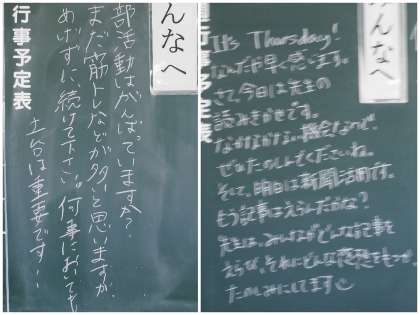 んなへ
行事予定表
部活動はがんばっていますか?
まだ筋トレなどが多いと思いますが、
めげずに、続けて下さい。何事においても
土台は重要です!!
んなへ
行事予定表
It's Thursday!
なんだか早く思います。
さて、今日は先生の
読みきかせです。
なかなかない機会なので、
ぜひたのしんでくださいね。
そして、明日は新聞活用です。
もう記事はえらんだかな?
先生は、みんながどんな記事を
えらび、それにどんな感想をもつか、
たのしみにしてます